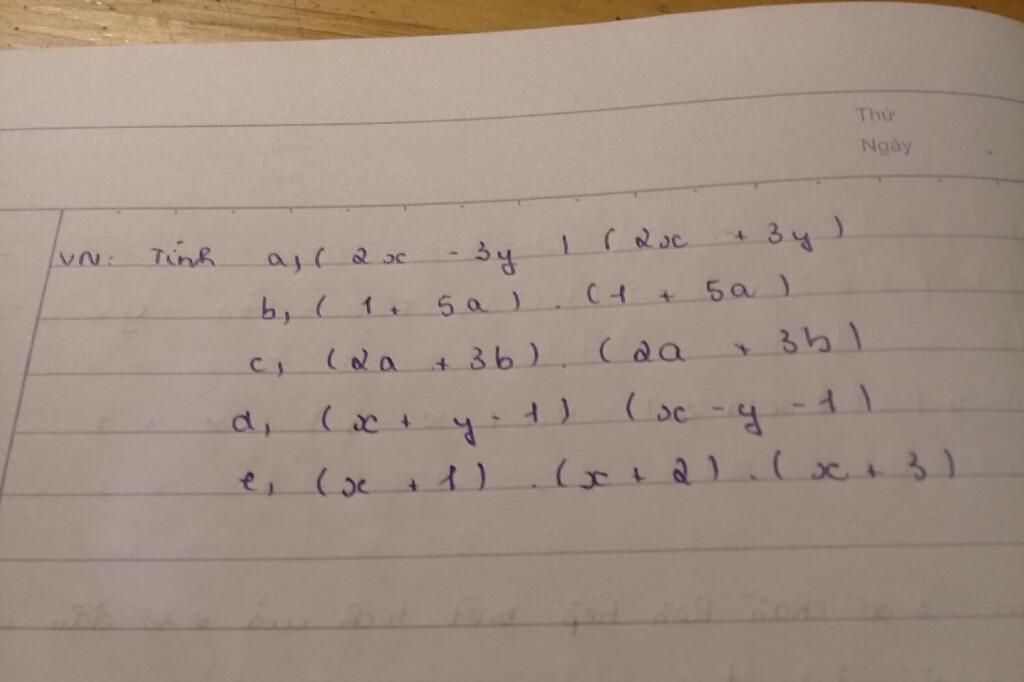 Thứ
Ngày
VN: Tính a, ( 2x - 3y ) ( 2x + 3y )
b, ( 1 + 5a ) . ( 1 + 5a )
c, ( 2a + 3b ) . ( 2a + 3b )
d, ( x + y - 1 ) ( x - y - 1 )
e, ( x + 1 ) . ( x + 2 ) . ( x + 3 )